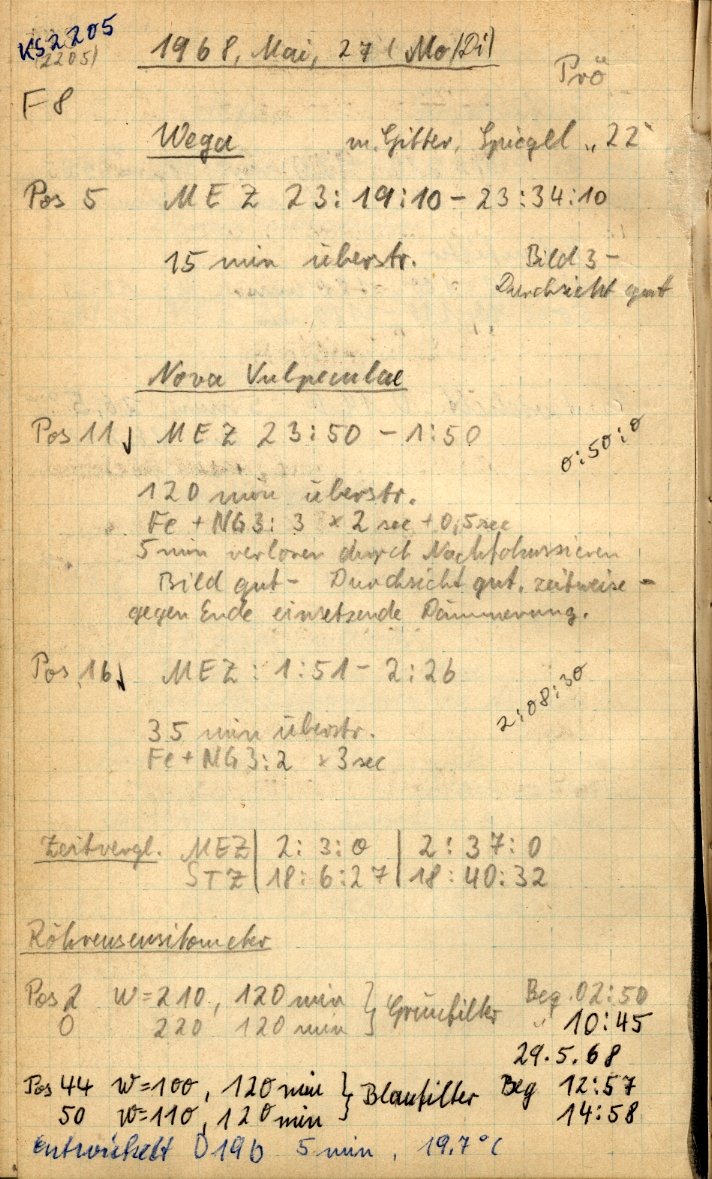 KS2205
(2205)
1968, Mai, 27 (Mo/Di)
Prö
F8
Wega m. Gitter, Spiegel „22"
Pos 5 MEZ 23:19:10 - 23:34:10
15 min überstr. Bild 3 -
Durchsicht gut
Nova Vulpeculae
Pos 11 MEZ 23:50 - 1:50
0:50:0
120 min überstr.
Fe + NG3: 3 x 2 sec + 0,5 sec
5 min verloren durch Nachfokussieren
Bild gut - Durchsicht gut, zeitweise -
gegen Ende einsetzende Dämmerung.
Pos 16 MEZ: 1:51 - 2:26
2:08:30
35 min überstr.
Fe + NG3: 2 x 3 sec
Zeitvergl. MEZ | 2: 3: 0 | 2: 37: 0
STZ | 18: 6: 27 | 18: 40: 32
Röhrensensitometer
Pos 2 W=210, 120 min } Grünfilter Beg. 02:50
0 220 120 min " 10:45
29.5.68
Pos 44 W=100, 120 min } Blaufilter Beg 12:57
50 W=110, 120 min 14:58
entwickelt D19b 5 min, 19.7°C